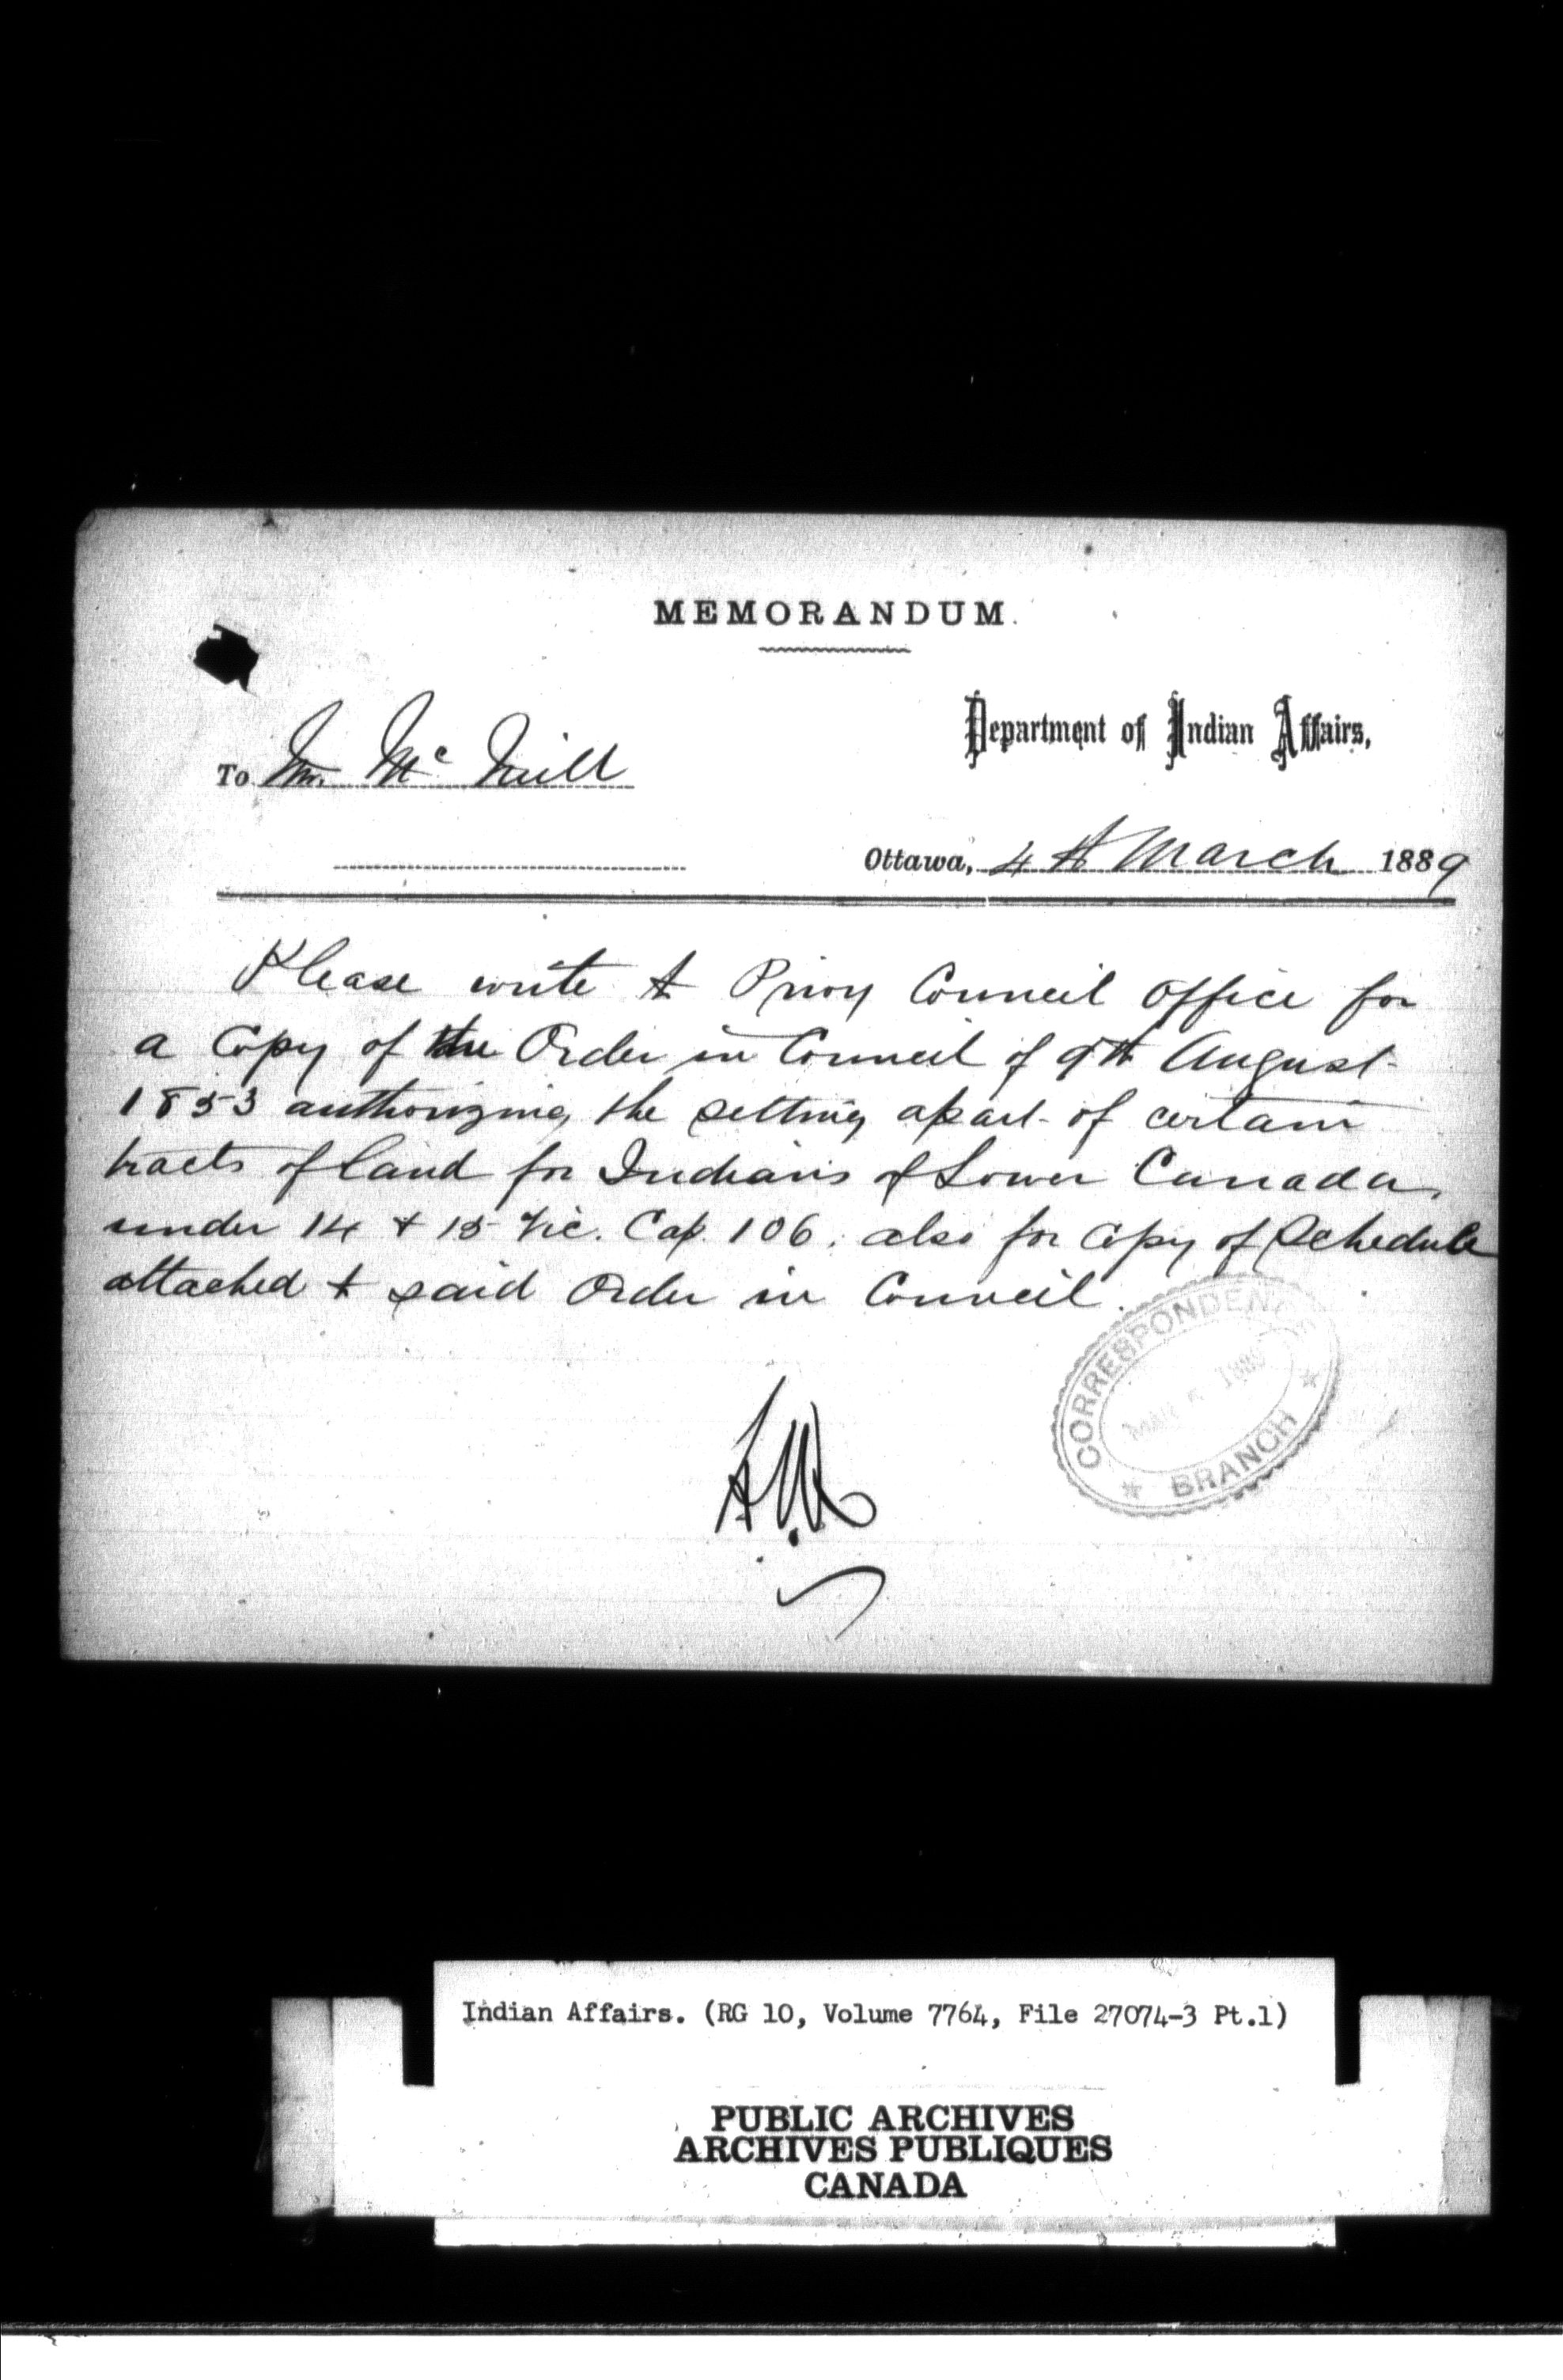 MEMORANDUM.
Department of Indian Affairs,
To Mr. McNeill
Ottawa, 4th March 1889
Please write to Privy Council Office for
a Copy of the Order in Council of 9th August
1853 authorizing the setting apart of certain
tracts of land for Indians of Lower Canada,
under 14 & 15 Vic. Cap. 106. also for Copy of Schedule
attached to said Order in Council.
CORRESPONDENCE
MAR 5 1889
BRANCH
Indian Affairs. (RG 10, Volume 7764, File 27074-3 Pt.1)
PUBLIC ARCHIVES
ARCHIVES PUBLIQUES
CANADA